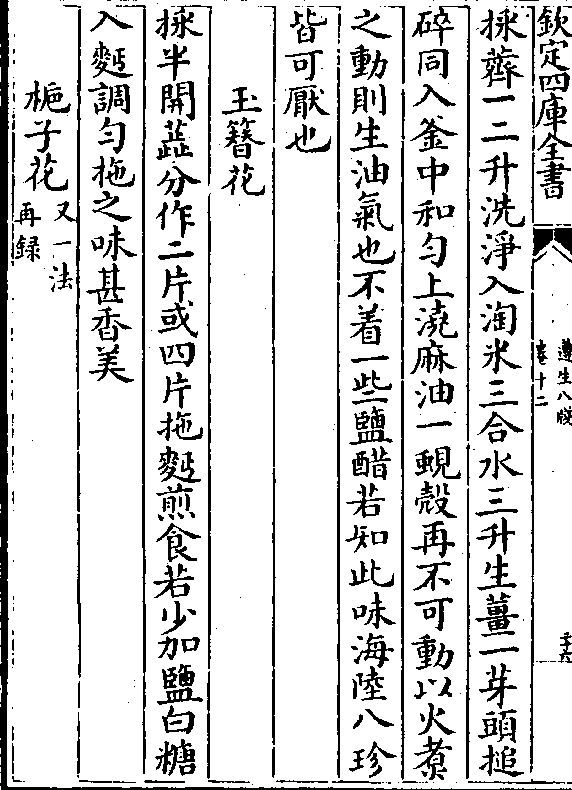 欽定四庫全書
遵生八牋
卷十二
二十六
採薺一二升洗淨入淘米三合水三升生薑一芽頭搥
碎同入釜中和勻上澆麻油一蜆殼再不可動以火煮
之動則生油氣也不着一些鹽醋若知此味海陸八珍
皆可厭也
玉簪花
採半開蕋分作二片或四片拖麫煎食若少加鹽白糖
入麫調勻拖之味甚香美
梔子花又一法
再録